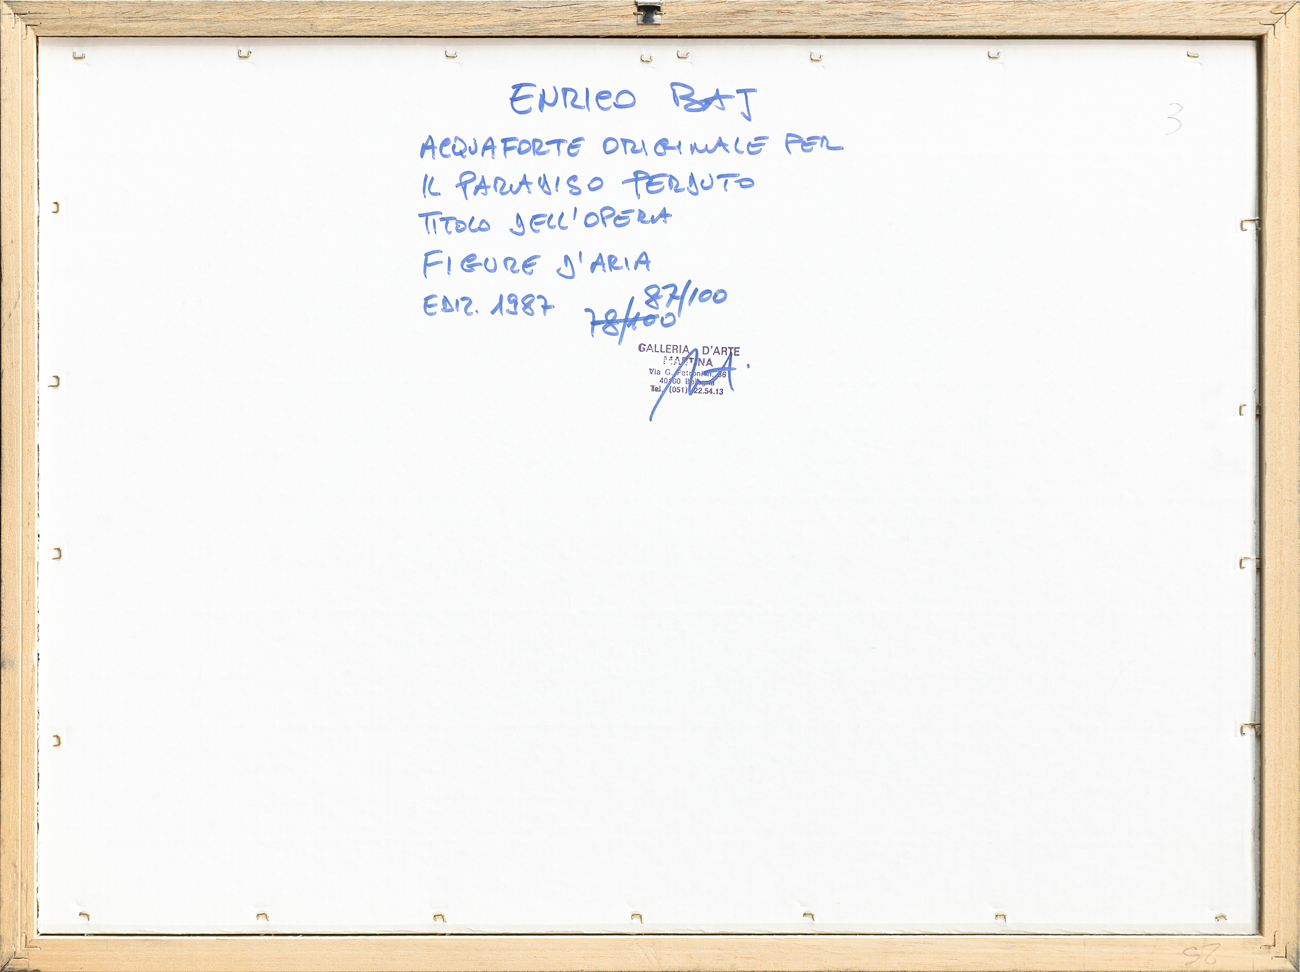 ENRICO BAJ
3
ACQUAFORTE ORIGINALE PER
IL PARADISO PERDUTO
TITOLO DELL'OPERA
FIGURE D'ARIA
EDIZ. 1987 87/100
78/100
GALLERIA D'ARTE
MARTINA
Via G. Petroni
40100 Bologna
Tel. (051) 22.54.13
25